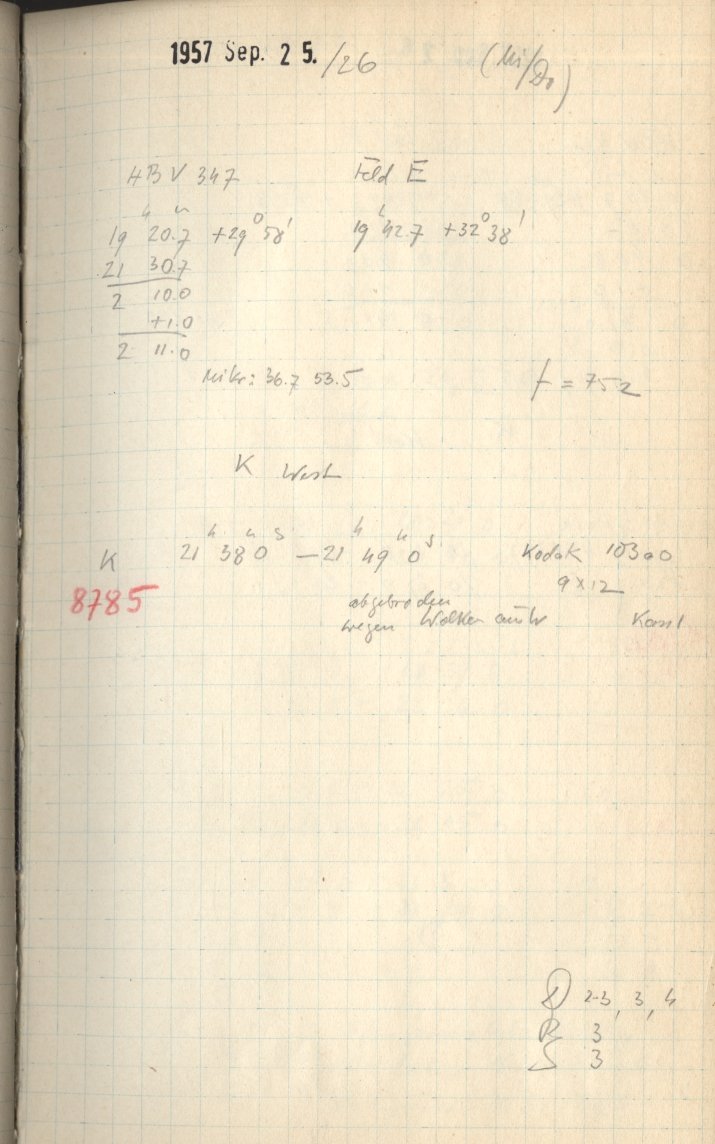 1957 Sep. 25./26 (Mi/Do)
HBV 347 Feld E
19ʰ 20.7ᵐ +29° 58' 19ʰ 42.7 +32° 38'
21 30.7
2 10.0
+1.0
2 11.0
Mikr: 36.7 53.5 f = 752
K West
K 21ʰ 38ᵐ 0ˢ — 21ʰ 49ᵐ 0ˢ Kodak 103a0
9x12
8785
abgebrochen
wegen Wolken
D 2-3, 3, 4
R 3
S 3